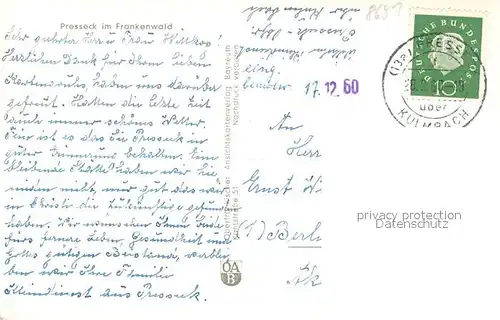 Presseck im Frankenwald
Sehr geehrter Herr u. Frau Wittkop!
Herzlichen Dank für Ihren lieben
Kartengruß, haben uns darüber
gefreut. Hatten die letzte Zeit
auch immer schönes Wetter.
Freut ist es das Sie Presseck in
guter Erinnerung behalten. Eine
bleibende Stätte haben wir hie
nieden nicht, nur gut das wir
in Christi die Zukünftige gefunden
haben. Wir wünschen Ihnen beide
fürs fernere Leben, Gesundheit und
Gottes gütigen Beistand, verblei
ben wir Ihre Familie
Kleindienst aus Presseck.
Oberfränkischer Ansichtskartenverlag Bayreuth
Nachdruck verboten
eing.
17.12.60
8659
DEUTSCHE BUNDESPOST
10
(13a) PRESSECK
über
KULMBACH
An
Herr
Ernst W
(1) Berli
OA
B
privacy protection
Datenschutz